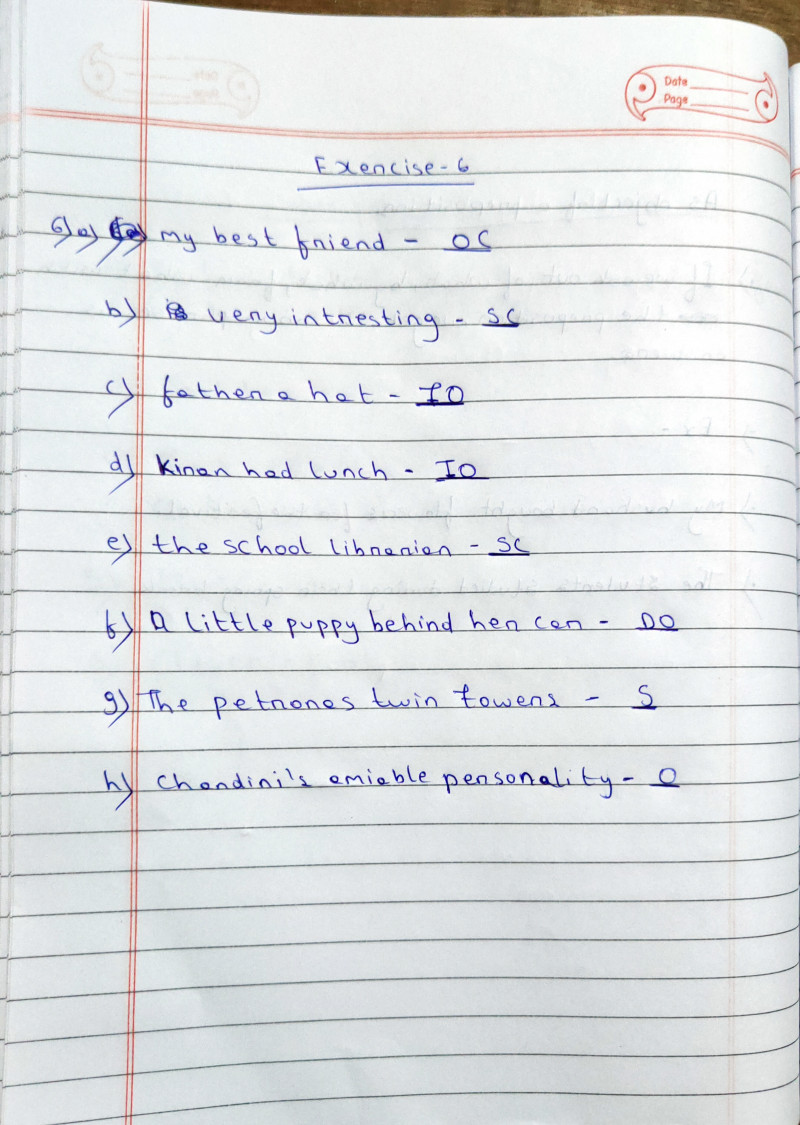 Date
Page
Exercise-6
6) a) my best friend - OC
b) very intresting - SC
c) father a hat - IO
d) Kiran had lunch - IO
e) the school librarian - SC
f) A little puppy behind her car - DO
g) The petrones twin towers - S
h) Chandini's amiable personality - O